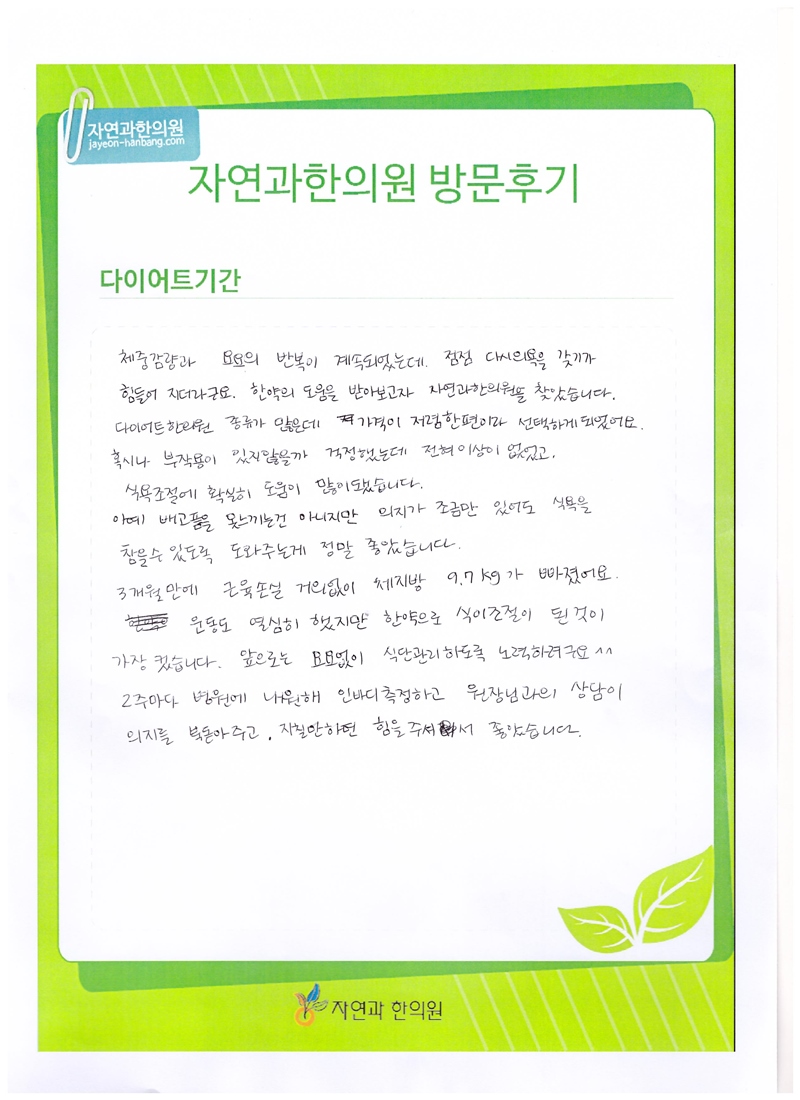 자연과한의원
jayeon-hanbang.com
자연과한의원 방문후기
다이어트기간
체중감량과 요요의 반복이 계속되었는데. 점점 다시의욕을 갖기가
힘들어 지더라구요. 한약의 도움을 받아보고자 자연과한의원을 찾았습니다.
다이어트한의원 종류가 많은데 가격이 저렴한편이라 선택하게되었어요.
혹시나 부작용이 있지않을까 걱정했는데 전혀이상이 없었고.
식욕조절에 확실히 도움이 많이됐습니다.
아예 배고픔을 못느끼는건 아니지만 의지가 조금만 있어도 식욕을
참을수 있도록 도와주는게 정말 좋았습니다.
3개월만에 근육손실 거의없이 체지방 9.7kg가 빠졌어요.
운동도 열심히 했지만 한약으로 식이조절이 된것이
가장 컸습니다. 앞으로는 요요없이 식단관리하도록 노력하려구요^^
2주마다 병원에 내원해 인바디측정하고 원장님과의 상담이
의지를 북돋아주고, 지칠만하면 힘을주셔서 좋았습니다.
자연과 한의원